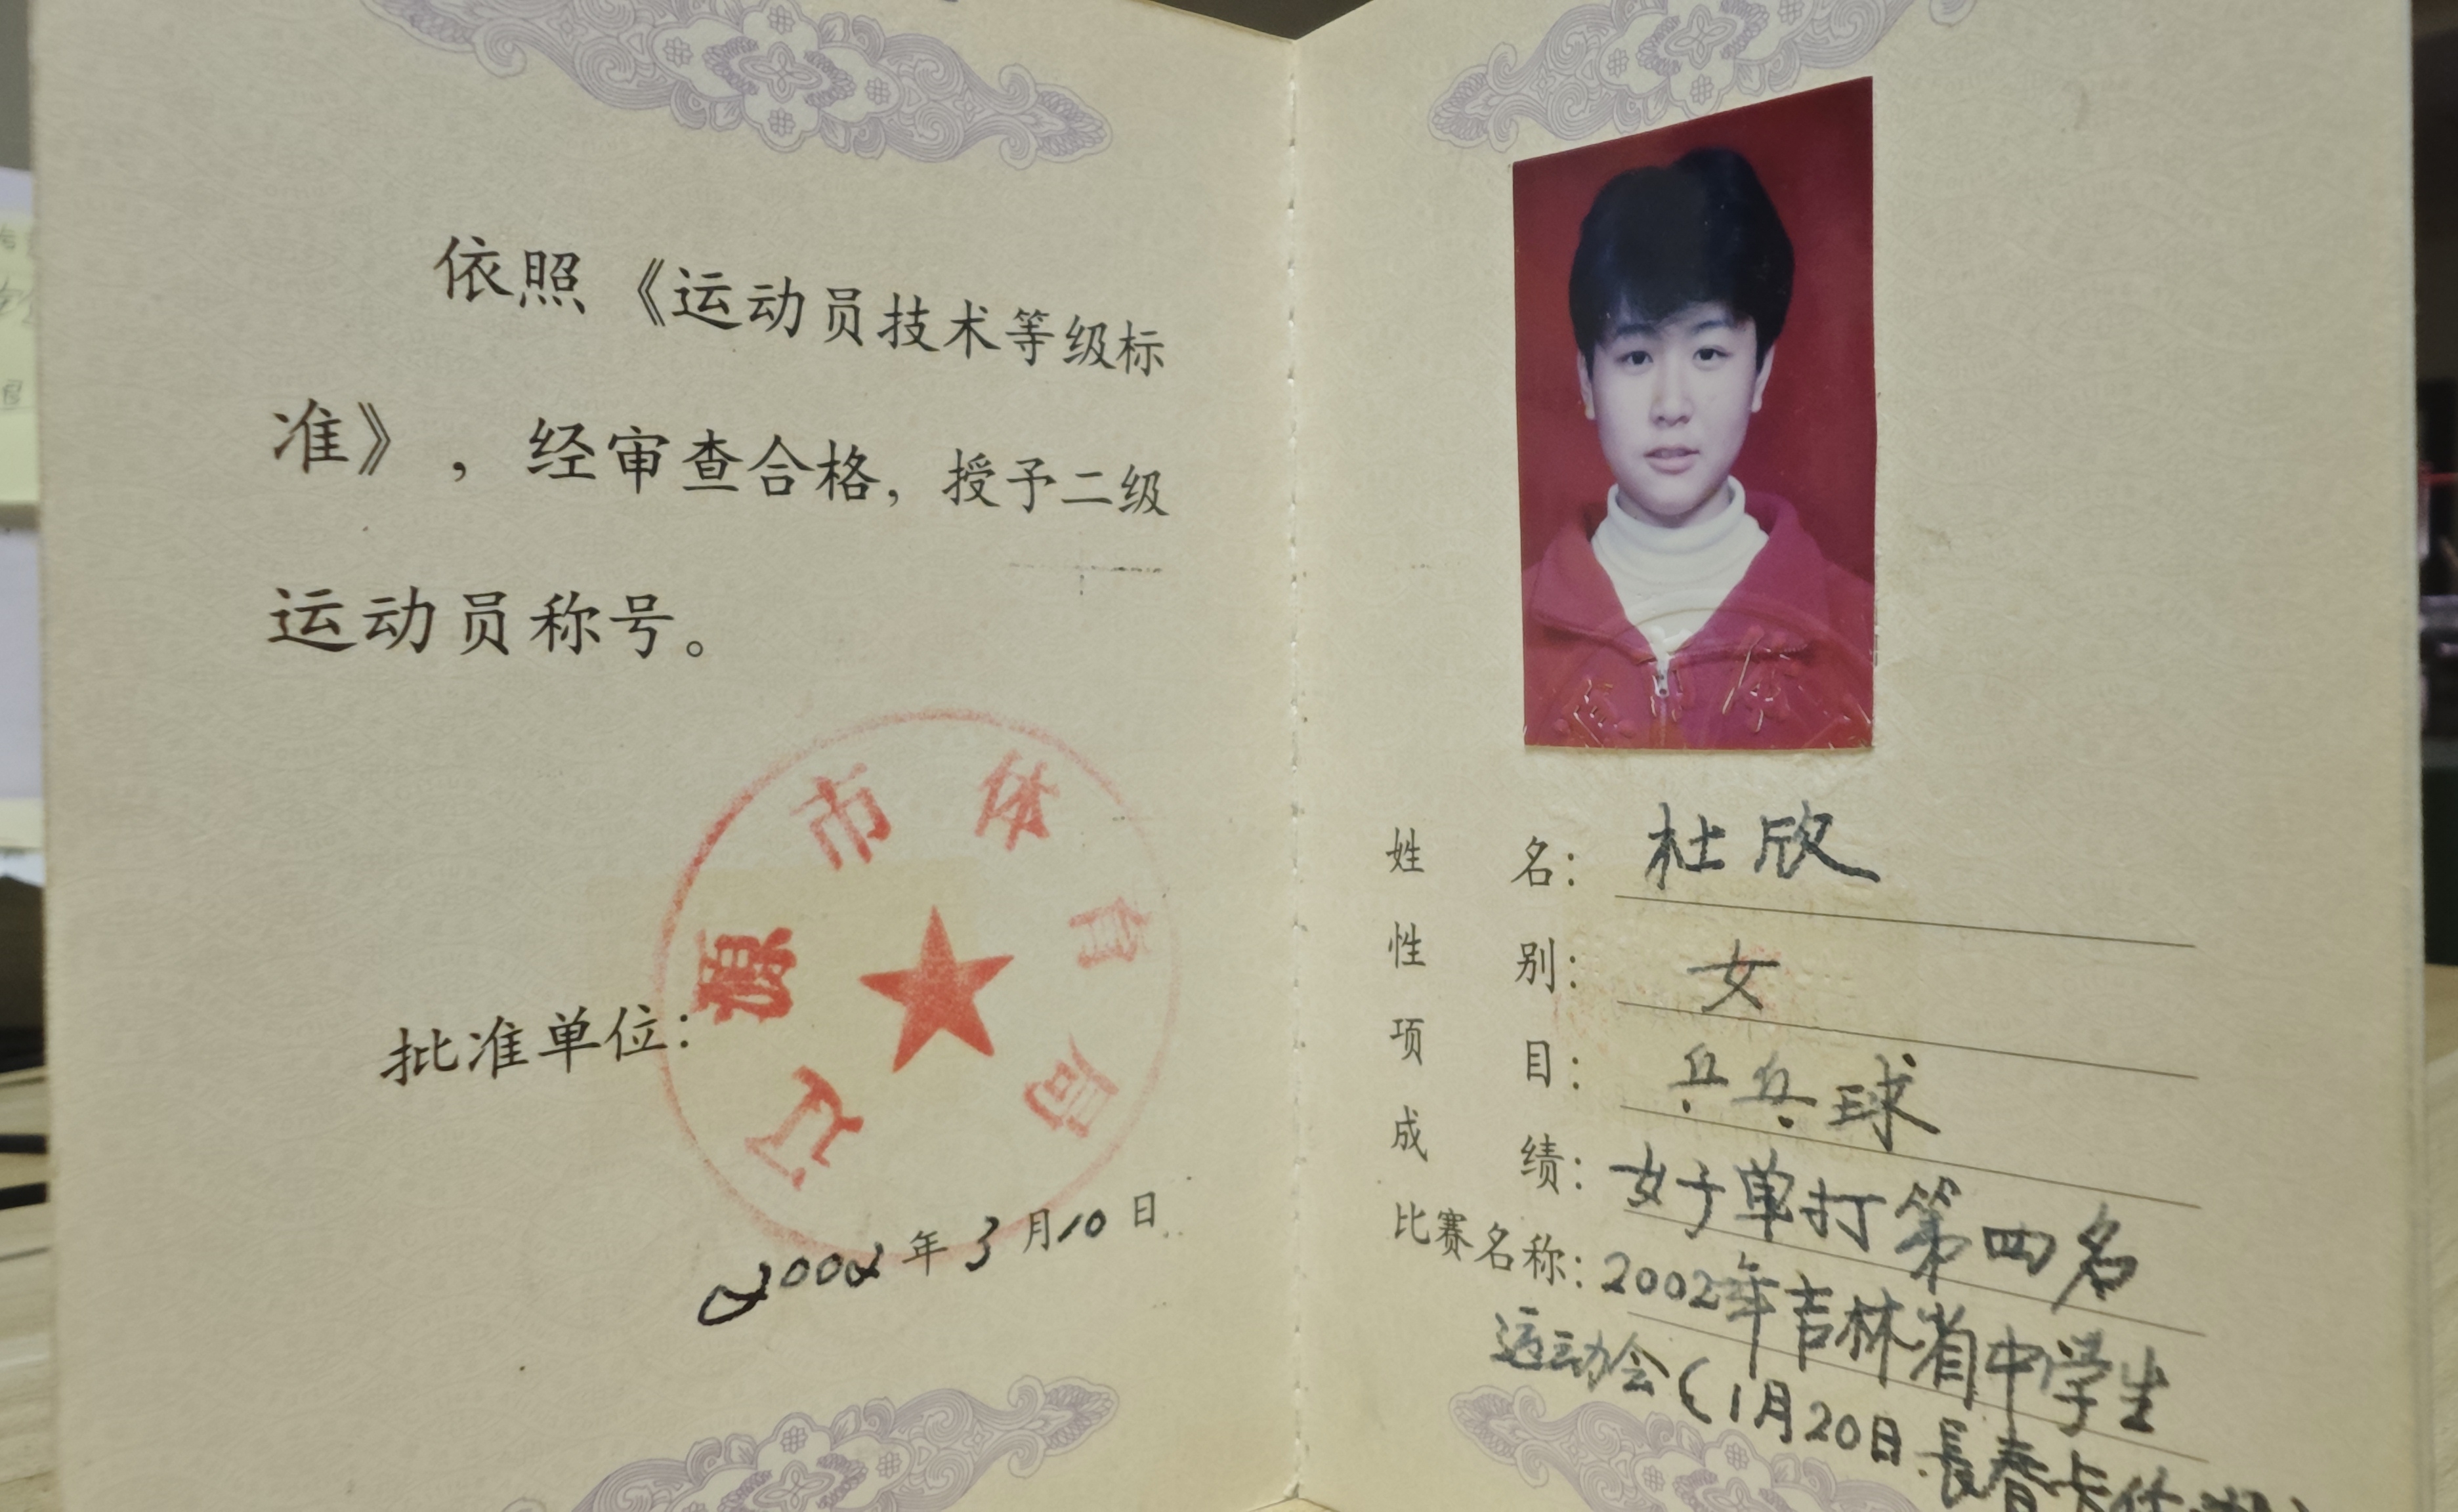 依照《运动员技术等级标
准》，经审查合格，授予二级
运动员称号。
批准单位：
辽源市体育局
2002年3月10日
姓名：杜欣
性别：女
项目：乒乓球
成绩：女子单打第四名
比赛名称：2002年吉林省中学生
运动会（1月20日.長春